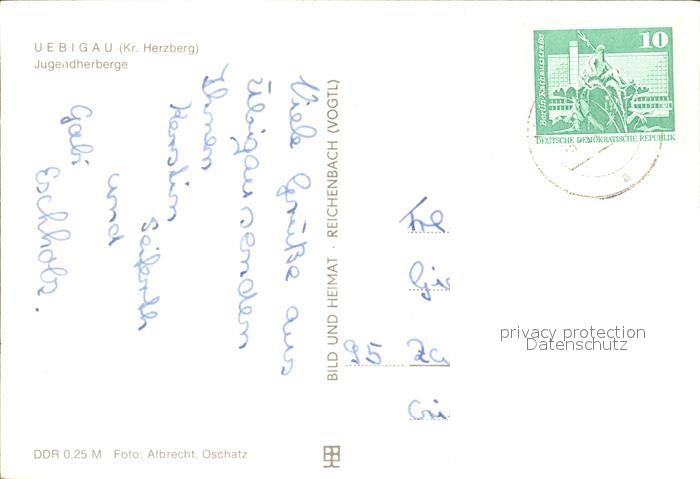 UEBIGAU (Kr. Herzberg)
Jugendherberge
Viele Grüße aus
Übigau senden
Ihnen
Kerstin
Seiferth
und
Gabi
Eschholz.
BILD UND HEIMAT · REICHENBACH (VOGTL)
10
Berlin, Rathausstraße
DEUTSCHE DEMOKRATISCHE REPUBLIK
95
privacy protection
Datenschutz
DDR 0,25 M Foto: Albrecht, Oschatz